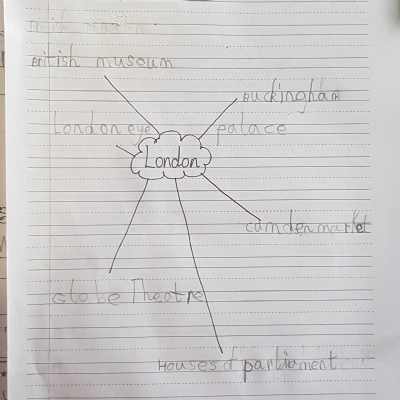 British museum
Buckingham
London eye
palace
London
camden market
Globe Theatre
Houses of parliament